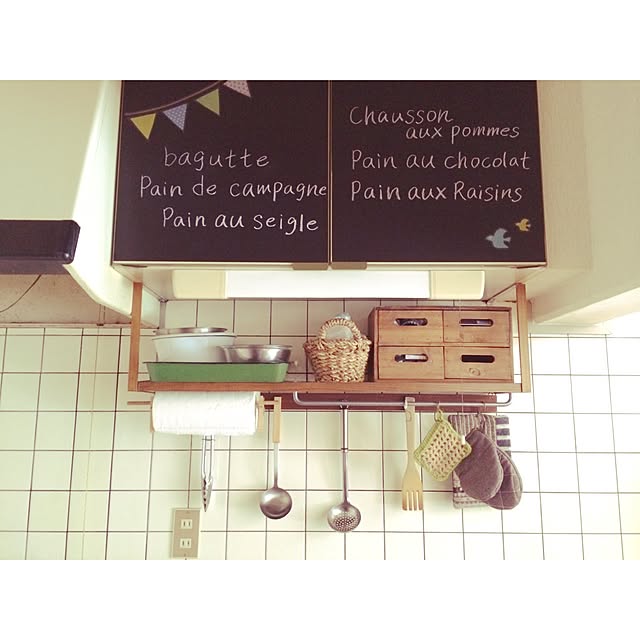 bagutte
Pain de campagne
Pain au seigle
Chausson
aux pommes
Pain au chocolat
Pain aux Raisins